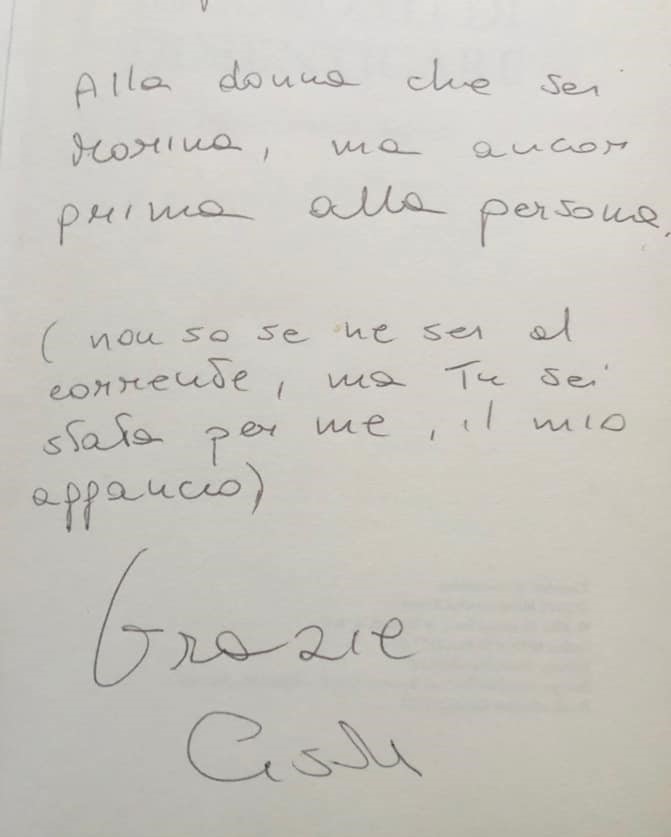 Alla donna che sei
Marina, ma ancor
prima alla persona.
( non so se ne sei al
corrente, ma Tu sei
stata per me, il mio
aggancio)
Grazie